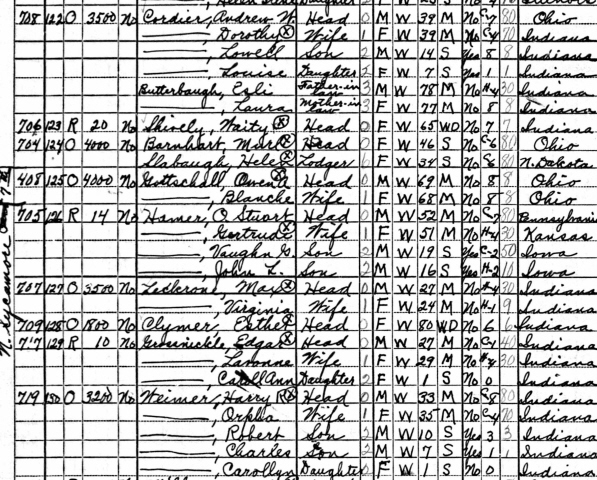 708 122 O 3500 No Cordier, Andrew W. Head 0 M W 39 M No C-7 80 Ohio
Dorothy Wife 1 F W 39 M No C-4 70 Indiana
Lowell Son 2 M W 14 S Yes 8 8 Indiana
Louise Daughter 2 F W 7 S Yes 1 1 Indiana
Butterbaugh, Ezli Father-in-law 3 M W 78 M No H-4 30 Indiana
Laura Mother-in-law 3 F W 77 M No 8 8 Indiana
706 123 R 20 No Shively, Waity Head 0 F W 65 WD No 7 7 Indiana
704 124 O 4000 No Barnhart, Mark Head 0 F W 46 S No C-6 80 Ohio
Slabaugh, Helen Lodger 6 F W 34 S No C-6 80 N. Dakota
408 125 O 4000 No Gottschall, Owen Head 0 M W 69 M No 8 8 Ohio
Blanche Wife 1 F W 68 M No 8 8 Ohio
705 126 R 14 No Hamer, O. Stuart Head 0 M W 52 M No C-7 80 Pennsylvania
Gertrude Wife 1 F W 51 M No H-4 30 Kansas
Vaughn G. Son 2 M W 19 S Yes C-2 50 Iowa
John L. Son 2 M W 16 S Yes H-2 10 Iowa
707 127 O 3500 No Leclerone, Max Head 0 M W 27 M No H-4 30 Indiana
Virginia Wife 1 F W 24 M No H-1 9 Indiana
709 128 O 1800 No Clymer, Esther Head 0 F W 80 WD No 6 6 Indiana
717 129 R 10 No Edgar Head 0 M W 27 M No C-1 40 Indiana
Lavonne Wife 1 F W 29 M No H-4 30 Indiana
Caroll Ann Daughter 2 F W 1 S No 0 Indiana
719 130 O 3200 No Weimer, Harry R. Head 0 M W 33 M No C-5 80 Indiana
Orpha Wife 1 F W 35 M No C-4 70 Indiana
Robert Son 2 M W 10 S Yes 3 3 Indiana
Charles Son 2 M W 7 S Yes 1 1 Indiana
Carollyn Daughter 2 F W 1 S No 0 Indiana
N. Sycamore